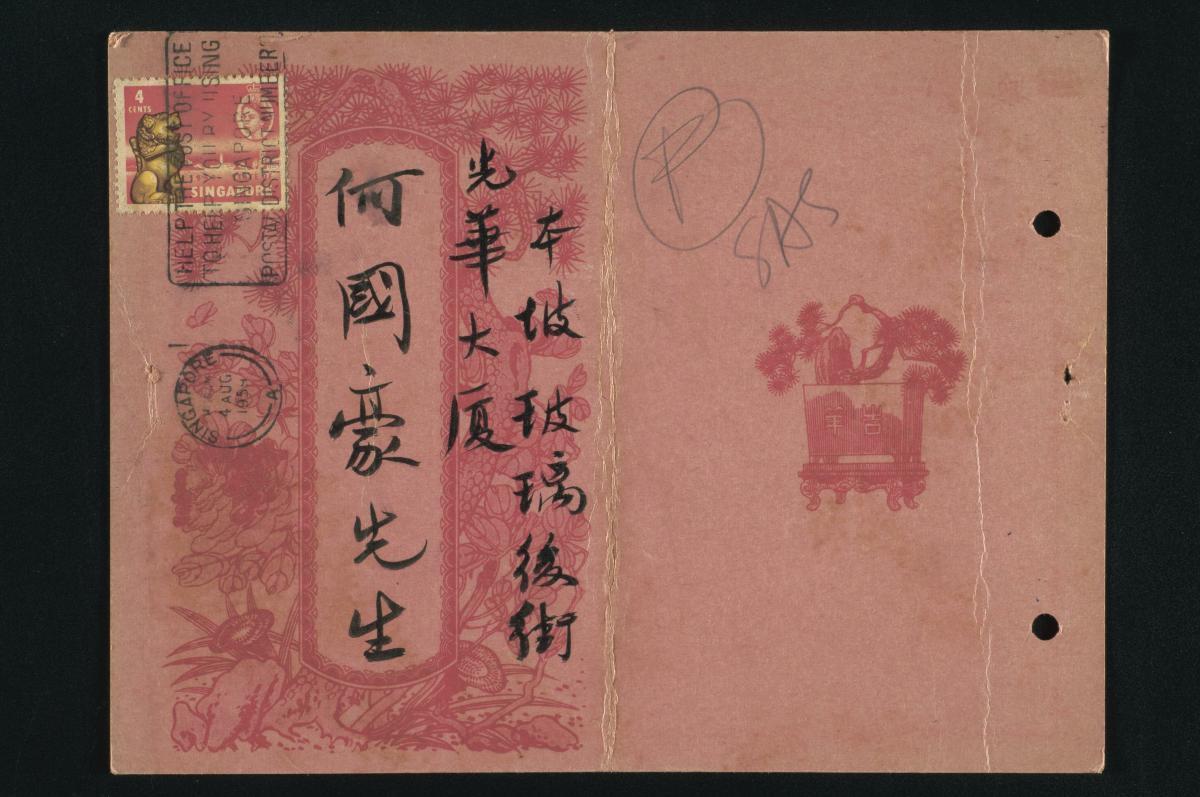 4
CENTS
SINGAPORE
HELP THE POST OFFICE
TO HELP YOU BY USING
SINGAPORE
POSTAL DISTRICT NUMBER
SINGAPORE
4 AUG
A
本坡玻璃後街
光華大廈
何國豪先生
P
SAS